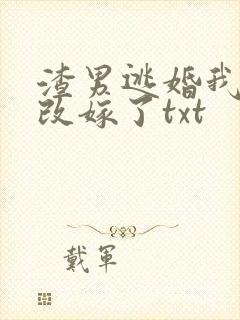 渣男逃婚我
改嫁了txt
戴軍